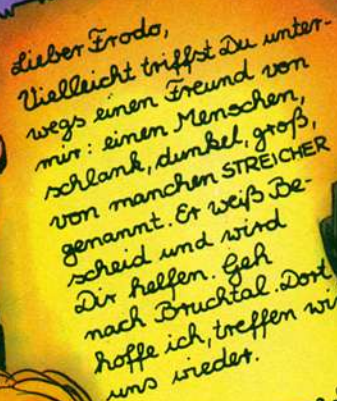 Lieber Frodo,
Vielleicht triffst Du unter-
wegs einen Freund von
mir: einen Menschen,
schlank, dunkel, groß,
von manchen STREICHER
genannt. Er weiß Be-
scheid und wird
Dir helfen. Geh
nach Bruchtal. Dort
hoffe ich, treffen wi
uns wieder.